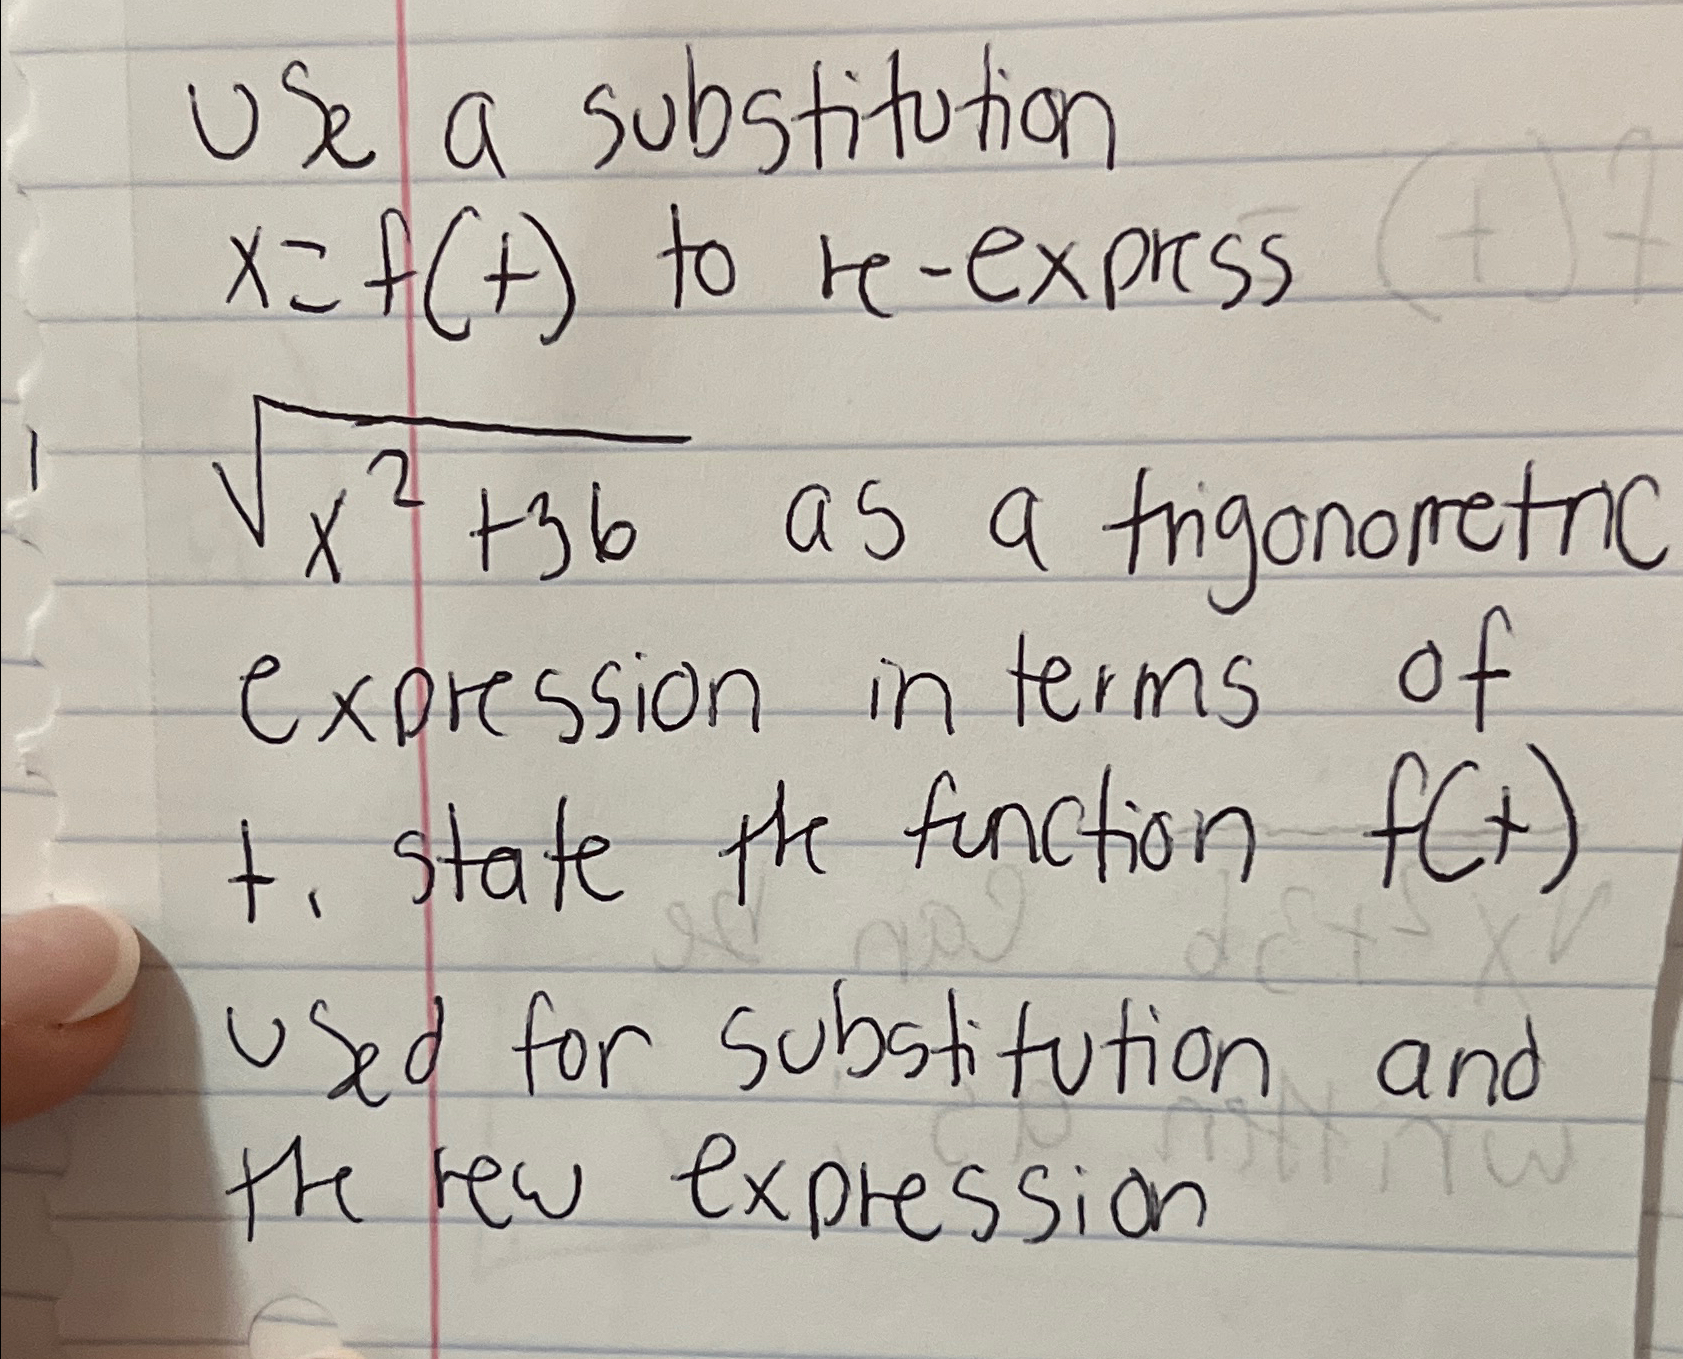 Use a substitution
x=f(t) to re-express
√x²+36 as a trigonometric
expression in terms of
t. state the function f(t)
used for substitution and
the new expression